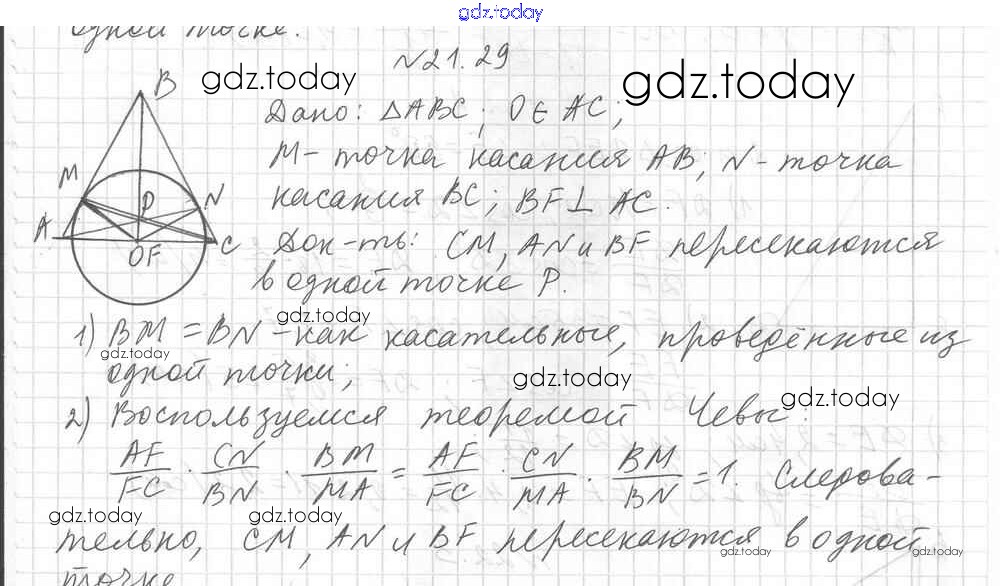 gdz.today
одной точке.
№21.29
gdz.today
gdz.today
B
M
N
P
A
O F
C
Дано: △ABC; O∈AC;
M - точка касания AB; N - точка
касания BC; BF⊥AC.
Док-ть: CM, AN и BF пересекаются
в одной точке P.
gdz.today
1) BM = BN - как касательные, проведённые из
gdz.today
одной точки;
gdz.today
2) Воспользуемся теоремой Чевы:
gdz.today
AF/FC · CN/BN · BM/MA = AF/FC · CN/MA · BM/BN = 1. Следова-
gdz.today
gdz.today
тельно, CM, AN и BF пересекаются в одной
gdz.today
gdz.today
точке